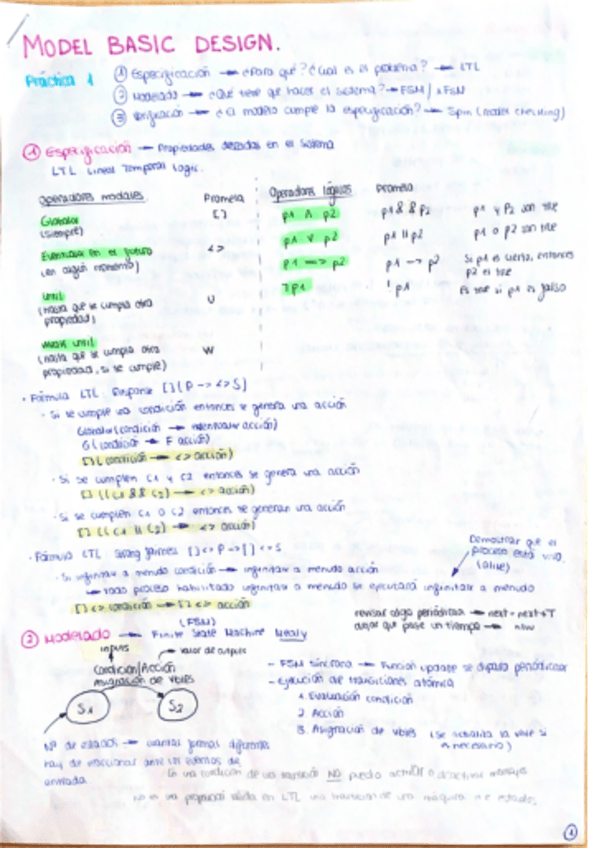 MODEL BASIC DESIGN.
Práctica 1
① Especificación → ¿Para qué? ¿Cuál es el problema? → LTL
② Modelado → ¿Qué tiene que hacer el sistema? → FSM / xFSM
③ Verificación → ¿El modelo cumple la especificación? → Spin (model checking)
① Especificación → Propiedades deseadas en el sistema
LTL Lineal Temporal Logic.
Operadores modales Promela
Globally (siempre) []
Eventually en el futuro (en algún momento) <>
Until (hasta que se cumpla otra propiedad) U
Weak until (hasta que se cumpla otra propiedad, si se cumple) W
Operadores lógicos Promela
p1 ∧ p2 p1 && p2 p1 y p2 son true
p1 ∨ p2 p1 || p2 p1 o p2 son true
p1 => p2 p1 -> p2 Si p1 es cierta, entonces p2 es true
¬p1 !p1 Es true si p1 es falso
· Fórmula LTL Response [](P -> <>S)
· Si se cumple una condición entonces se genera una acción
Globally (condición → eventually acción)
G (condición → F acción)
[] (condición → <> acción)
· Si se cumplen C1 y C2 entonces se genera una acción
[] ((C1 && C2) → <> acción)
· Si se cumplen C1 o C2 entonces se generan una acción
[] ((C1 || C2) → <> acción)
· Fórmula LTL Strong fairness []<>P -> []<>S
· Si infinitas a menudo condición → infinitas a menudo acción
→ todo proceso habilitado infinitas a menudo se ejecutará infinitas a menudo
[]<> condición → []<> acción
Demostrar que el proceso está vivo (alive)
revisar código periódicas → next = next + T
dejar que pase un tiempo → now
② Modelado → Finite State Machine Mealy (FSM)
inputs
valor de outputs
Condición/Acción
Asignación de vbles
S1 S2
Nº de estados → cuantas formas diferentes
hay de reaccionar ante los eventos de
entrada
- FSM síncrona → Función update se dispara periódicas
- ejecución de transiciones atómica
1. Evaluación condición
2. Acción
3. Asignación de vbles (Se actualiza la vble si es necesario)
En una condición de una transición NO puedo activar o desactivar
No es una propiedad válida en LTL una transición de una máquina de estados.
1